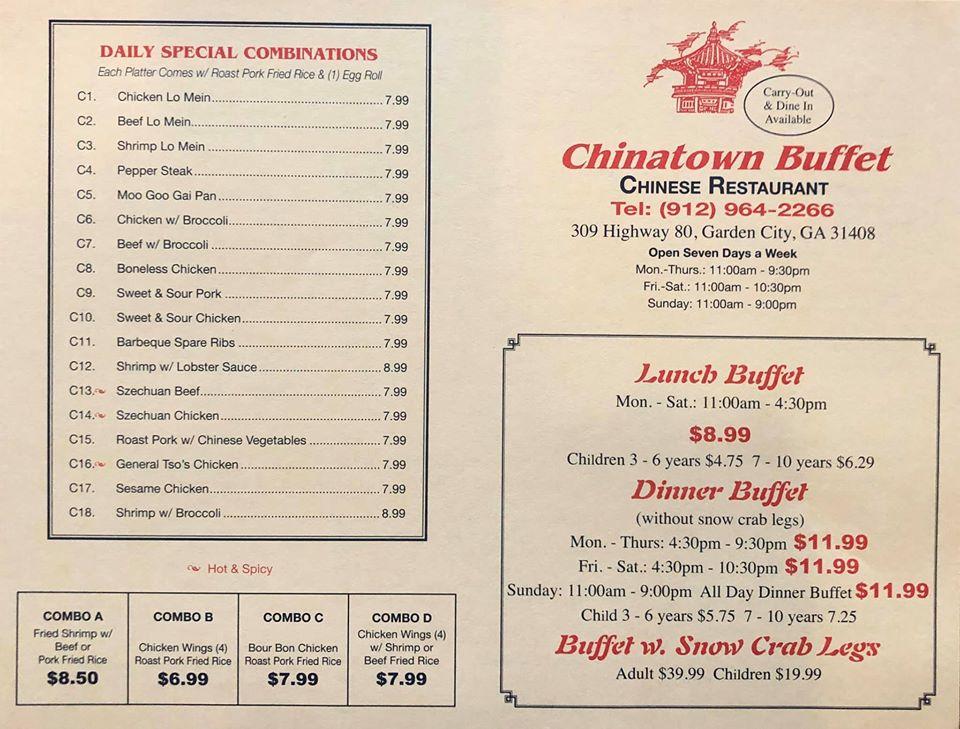 DAILY SPECIAL COMBINATIONS
Each Platter Comes w/ Roast Pork Fried Rice & (1) Egg Roll
C1. Chicken Lo Mein 7.99
C2. Beef Lo Mein 7.99
C3. Shrimp Lo Mein 7.99
C4. Pepper Steak 7.99
C5. Moo Goo Gai Pan 7.99
C6. Chicken w/ Broccoli 7.99
C7. Beef w/ Broccoli 7.99
C8. Boneless Chicken 7.99
C9. Sweet & Sour Pork 7.99
C10. Sweet & Sour Chicken 7.99
C11. Barbeque Spare Ribs 7.99
C12. Shrimp w/ Lobster Sauce 8.99
C13. Szechuan Beef 7.99
C14. Szechuan Chicken 7.99
C15. Roast Pork w/ Chinese Vegetables 7.99
C16. General Tso's Chicken 7.99
C17. Sesame Chicken 7.99
C18. Shrimp w/ Broccoli 8.99
Hot & Spicy
COMBO A
Fried Shrimp w/
Beef or
Pork Fried Rice
$8.50
COMBO B
Chicken Wings (4)
Roast Pork Fried Rice
$6.99
COMBO C
Bour Bon Chicken
Roast Pork Fried Rice
$7.99
COMBO D
Chicken Wings (4)
w/ Shrimp or
Beef Fried Rice
$7.99
Carry-Out
& Dine In
Available
Chinatown Buffet
CHINESE RESTAURANT
Tel: (912) 964-2266
309 Highway 80, Garden City, GA 31408
Open Seven Days a Week
Mon.-Thurs.: 11:00am - 9:30pm
Fri.-Sat.: 11:00am - 10:30pm
Sunday: 11:00am - 9:00pm
Lunch Buffet
Mon. - Sat.: 11:00am - 4:30pm
$8.99
Children 3 - 6 years $4.75 7 - 10 years $6.29
Dinner Buffet
(without snow crab legs)
Mon. - Thurs: 4:30pm - 9:30pm $11.99
Fri. - Sat.: 4:30pm - 10:30pm $11.99
Sunday: 11:00am - 9:00pm All Day Dinner Buffet $11.99
Child 3 - 6 years $5.75 7 - 10 years 7.25
Buffet w. Snow Crab Legs
Adult $39.99 Children $19.99